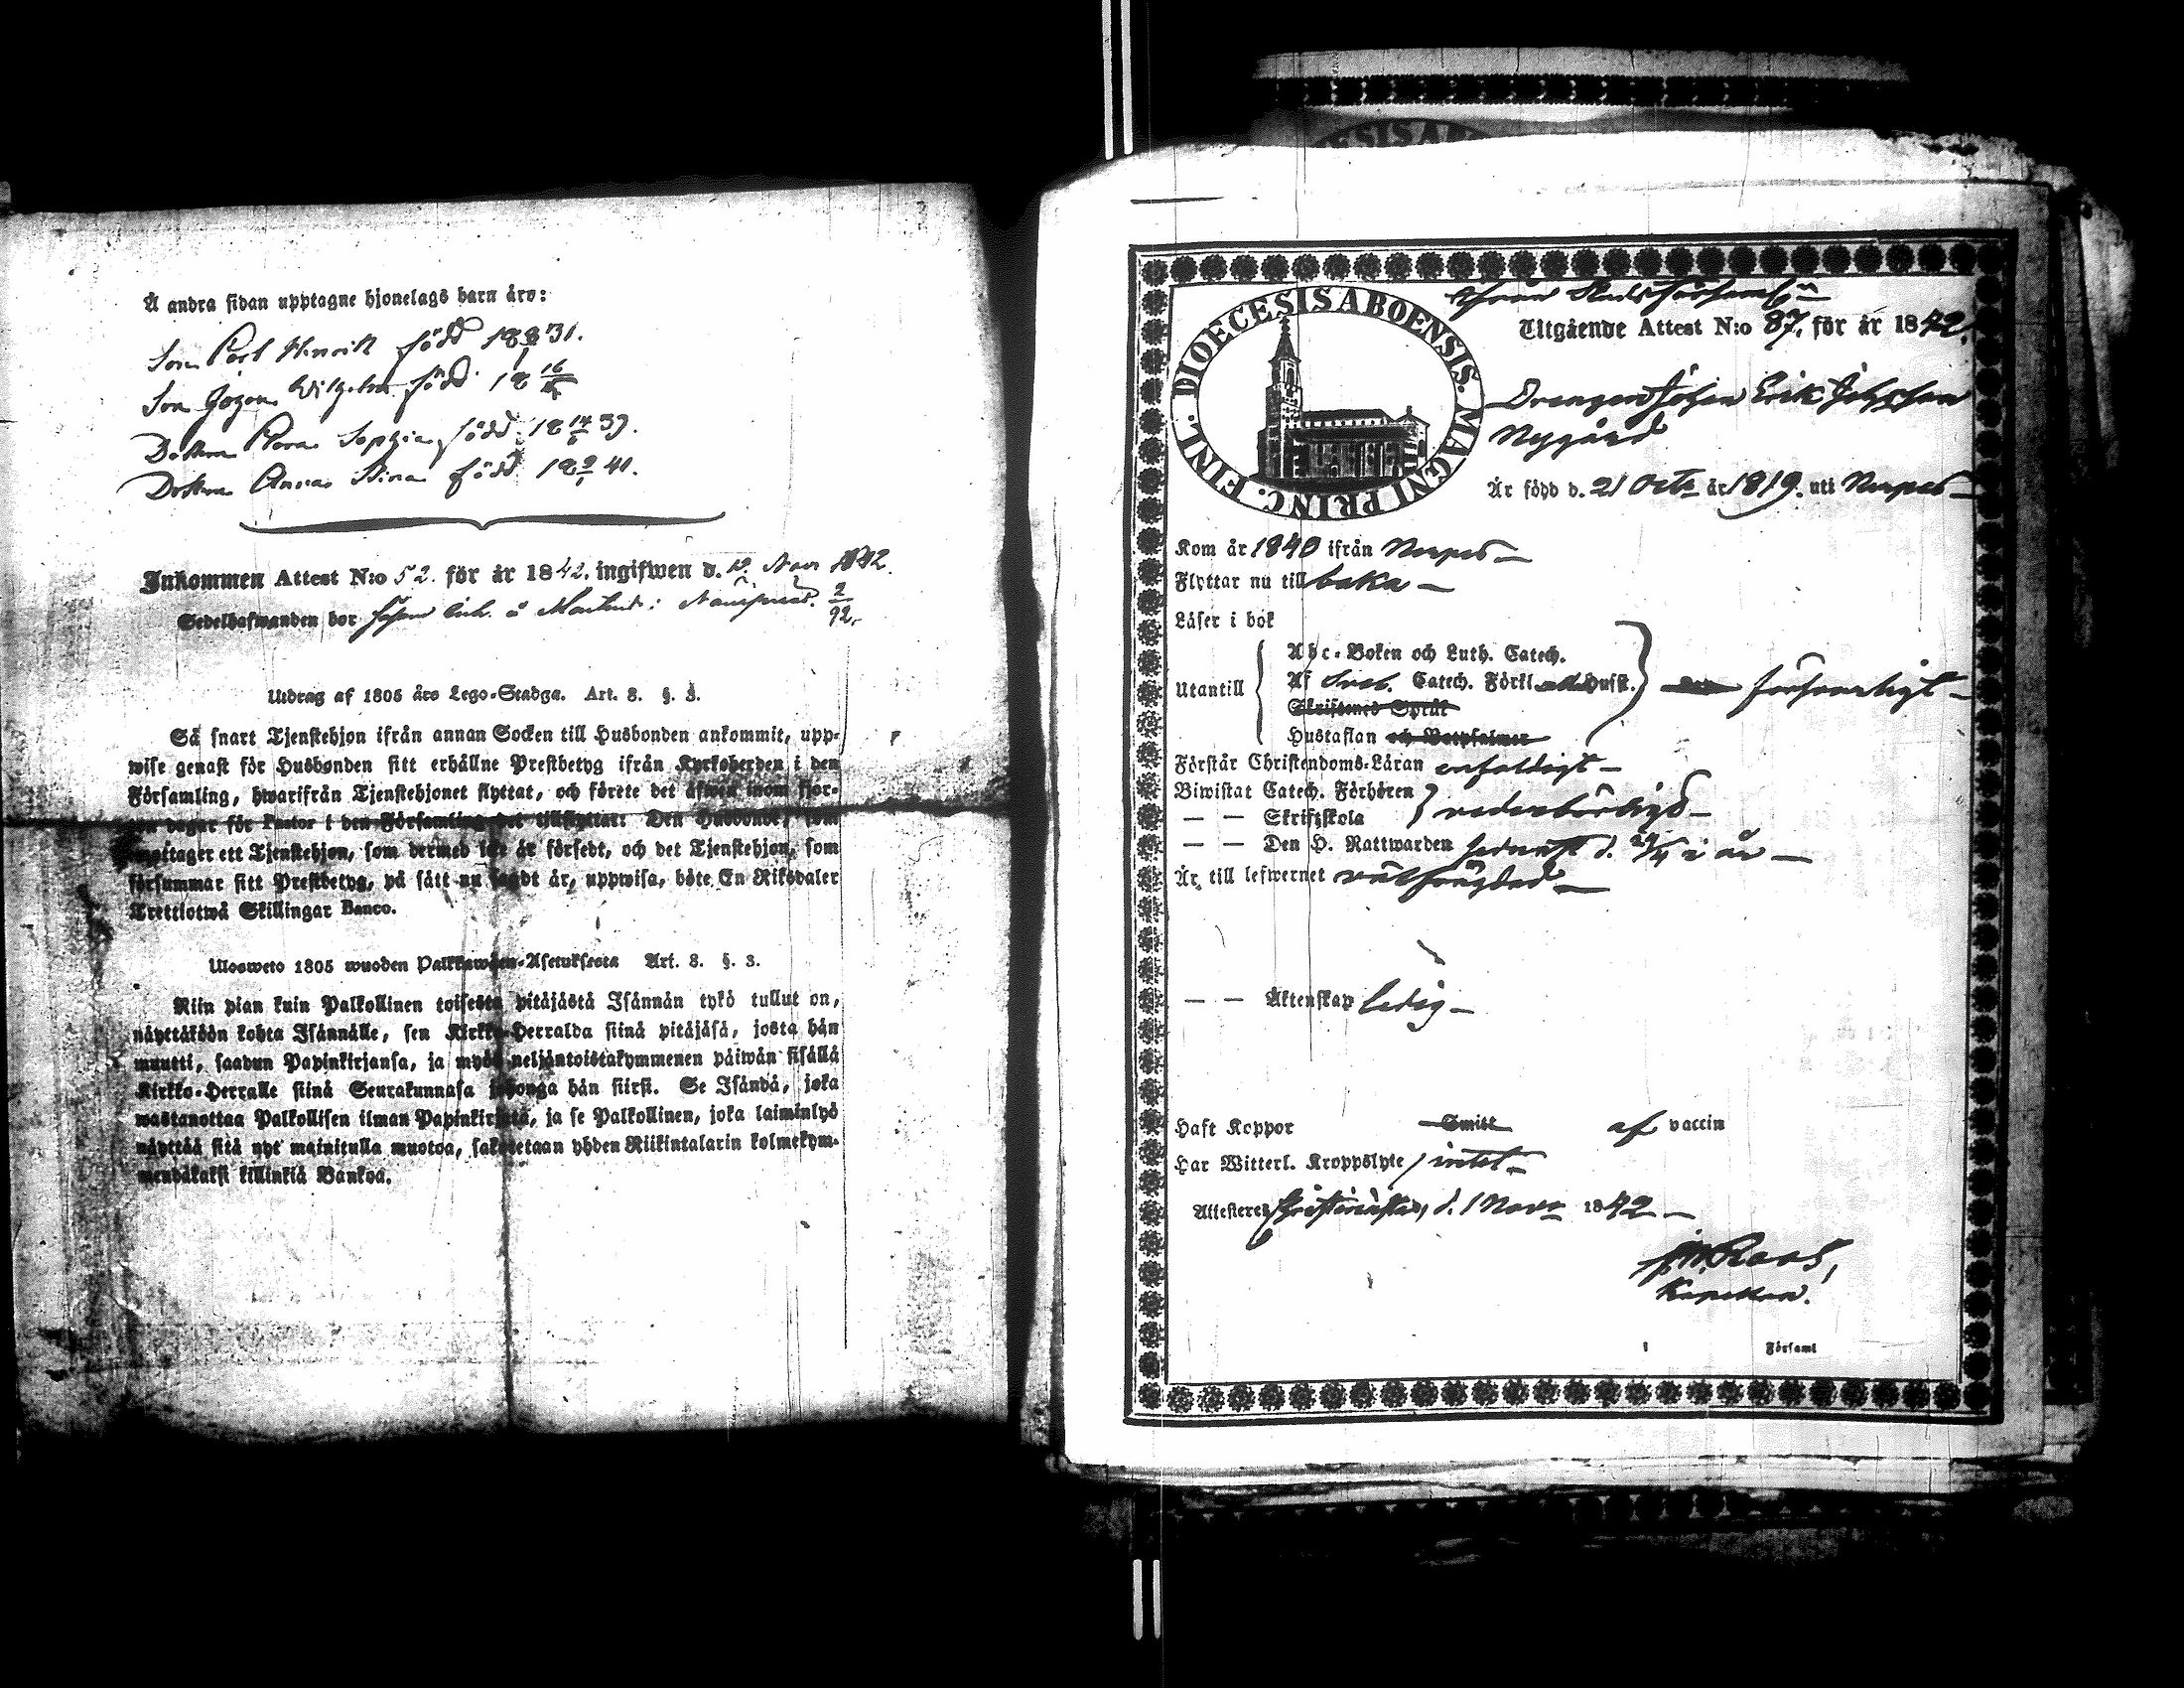 Å andra sidan upptagne hjonelags barn äro:
Son Carl Henrik född 18 31.
Son Johan Wilhelm född 18
Dottren Clara Sophia född 18 14 39.
Dottren Anna Stina född 18 41.
Inkommen Attest N:o 52. för år 1842. ingifwen d. 12 Nov 1842.
Sedelhafwanden bor
2/92.
Utdrag af 1805 års Lego-Stadga. Art. 8. §. 3.
Så snart Tjenstehjon ifrån annan Socken till Husbonden ankommit, upp-
wise genast för Husbonden sitt erhållne Prestbetyg ifrån Kyrkoherden i den
Församling, hwarifrån Tjenstehjonet flyttat, och förete det äfwen inom fjor-
ton dagar för Pastor i den Församling det tillflyttat: Den Husbonde, som
emottager ett Tjenstehjon, som dermed icke är försedt, och det Tjenstehjon, som
försummar sitt Prestbetyg, på sätt nu sagdt är, uppwisa, böte En Riksdaler
Trettiotwå Skillingar Banco.
Ulosweto 1805 wuoden Palkkawäen-Asetuksesta Art. 8. §. 3.
Niin pian kuin Palkollinen toisesta pitäjästä Isännän tykö tullut on,
näyttäköön kohta Isännälle, sen Kirkko-Herralda siinä pitäjäsä, josta hän
muutti, saadun Papinkirjansa, ja myös neljäntoistakymmenen päiwän sisällä
Kirkko-Herralle siinä Seurakunnasa johonga hän siirsi. Se Isändä, joka
wastanottaa Palkollisen ilman Papinkirjata, ja se Palkollinen, joka laiminlyö
näyttää sitä nyt mainitulla muotoa, sakotetaan yhden Riikintalarin kolmekym-
mendäkaksi killinkiä Bankoa.
DIOECESIS ABOENSIS. MAGNI PRINC. FINL.
Utgående Attest N:o 87. för år 1842.
Drengen Johan Erik Johsson
Nygård
Är född d. 21 Octr år 1819. uti Nerpes
Kom år 1840 ifrån Nerpes
Flyttar nu till baka
Läser i bok
Utantill
Abc-Boken och Luth. Catech.
Af Sveb. Catech. Förkl. Hufst.
Skriftenes Språk
Hustaflan och Botpsalmer
försvarligt
Förstår Christendoms-Läran enfaldigt
Biwistat Catech. Förhören
— — Skriftskola
vederbörligt
— — Den H. Nattwarden sednast d. 24/4 i år
Är till lefwernet välfrägdad
— — Äktenskap ledig
Haft Koppor Smitt af vaccin
Har Witterl. Kroppslyte intet
Attesteres Christinæstad, d. 1 Novr 1842
Kapellan.
Församl